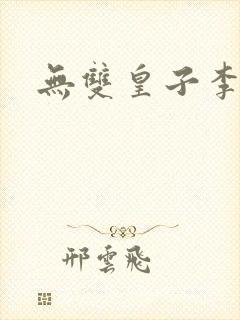 無雙皇子李
邢雲飛